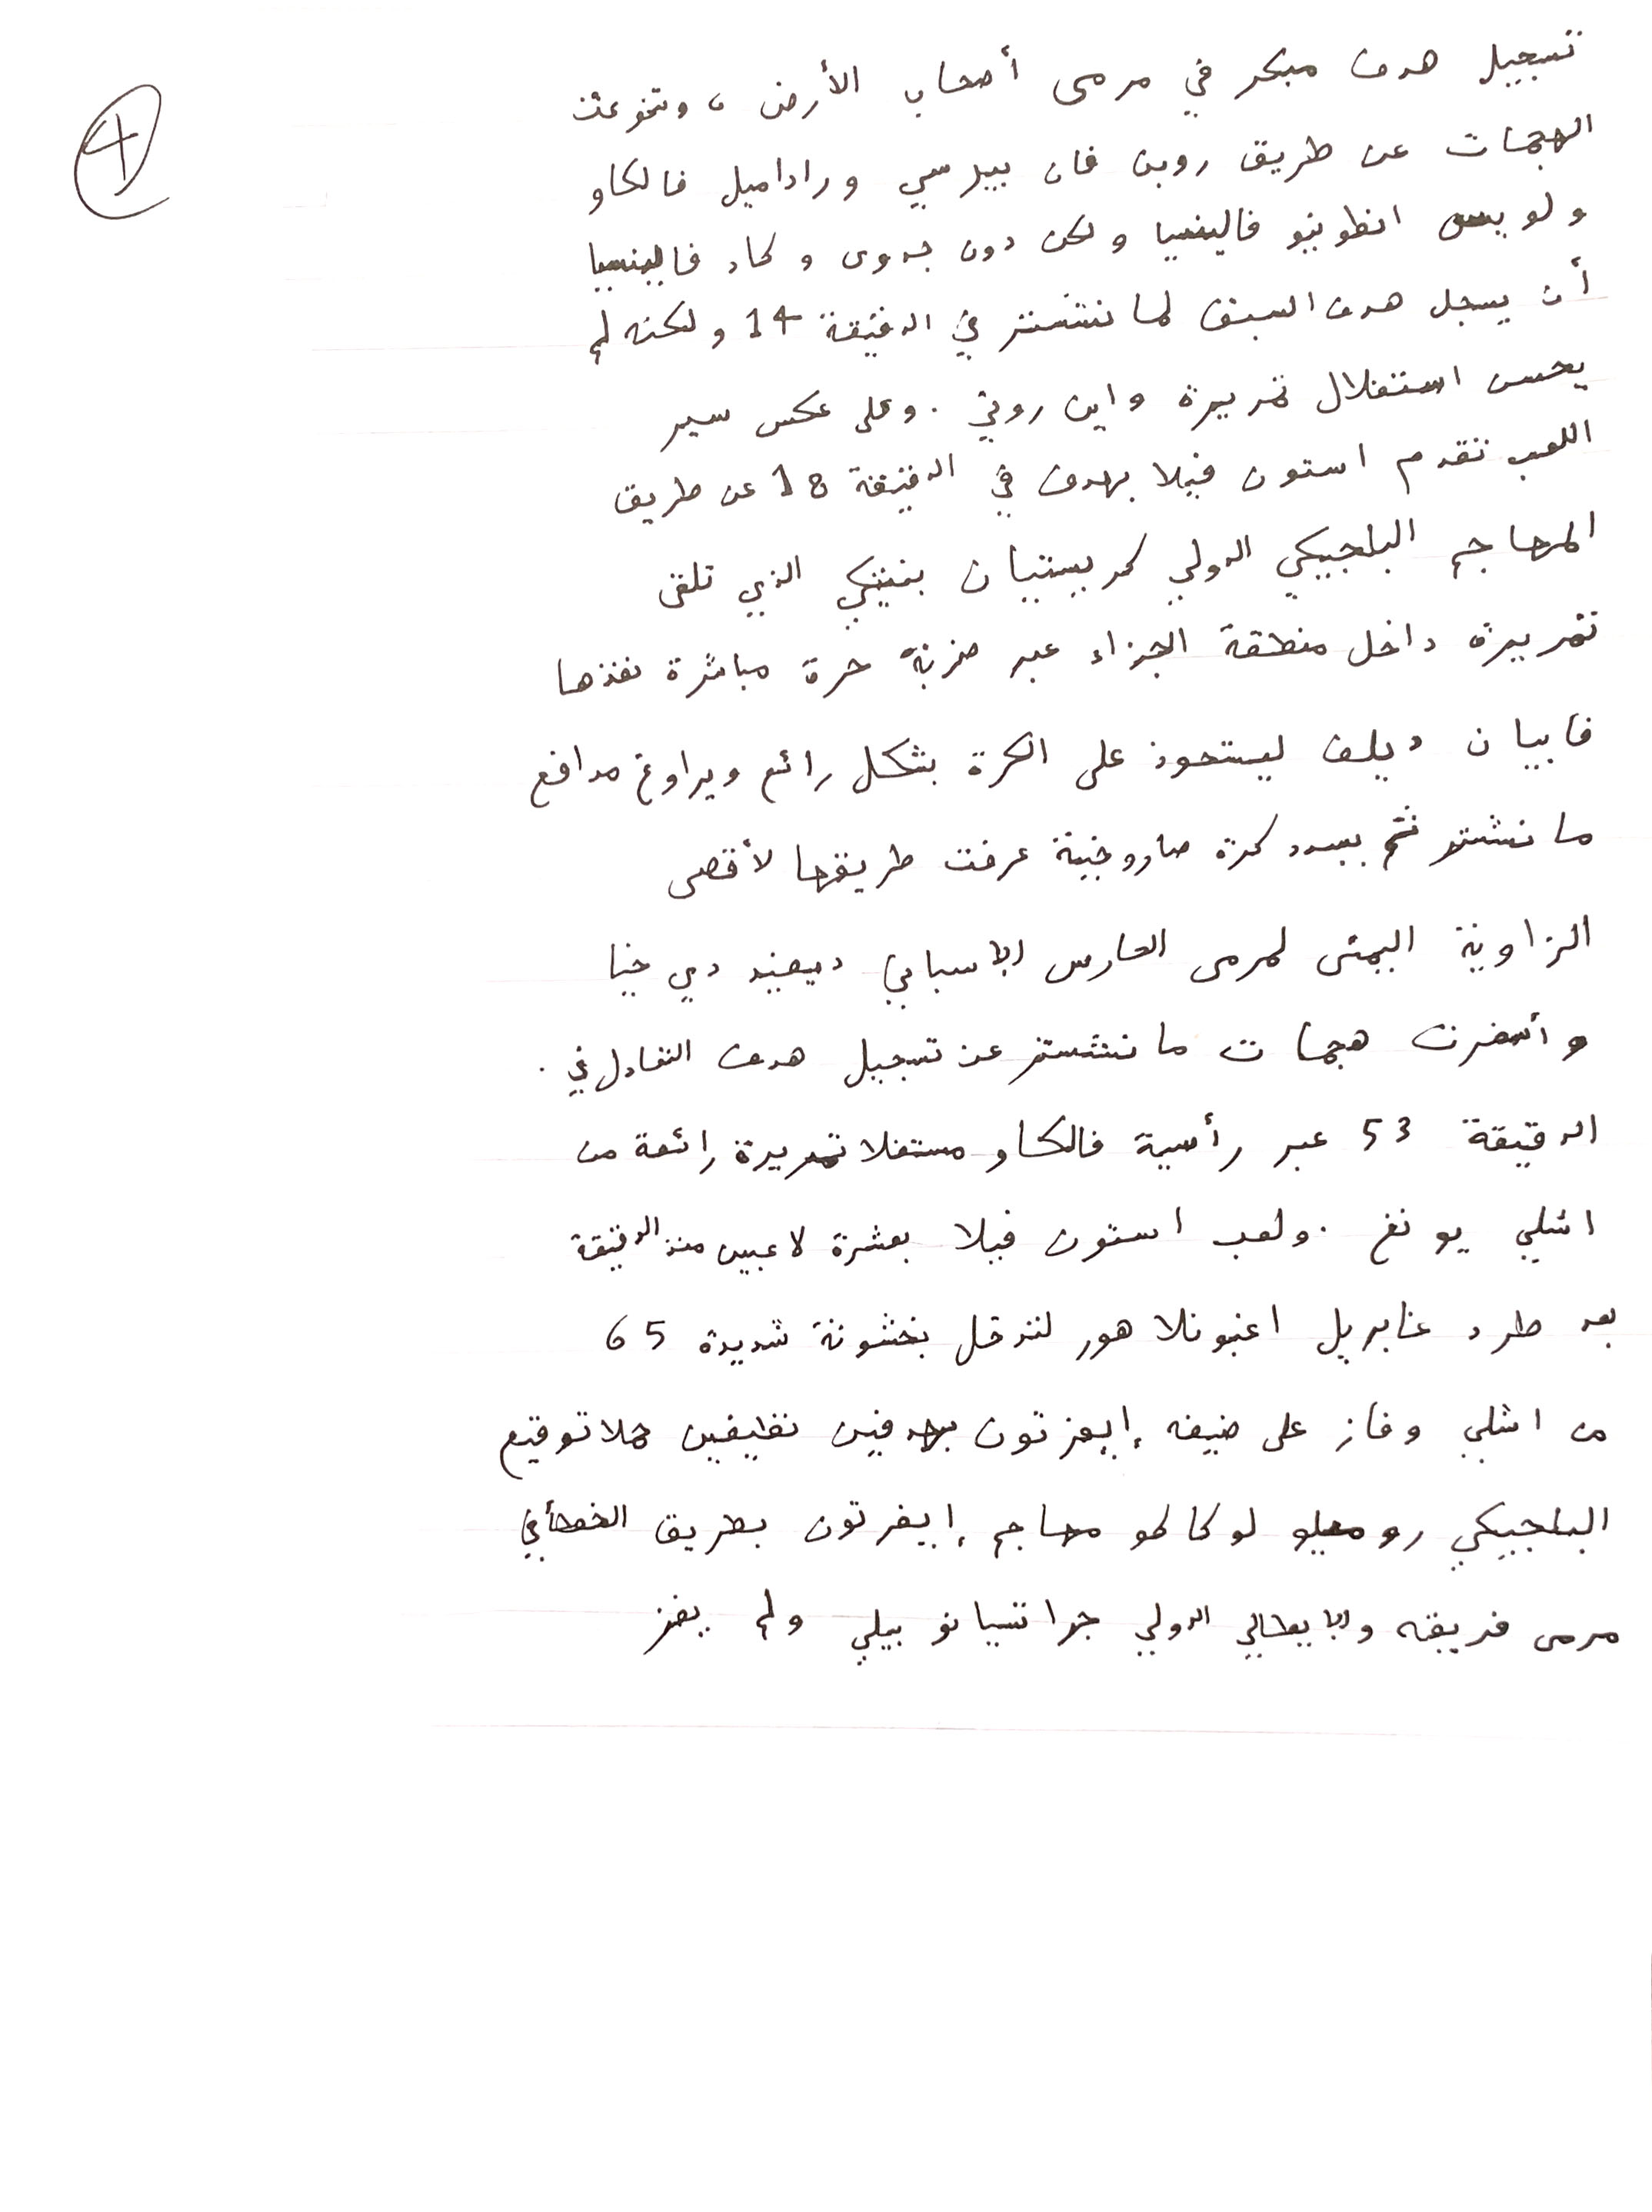 4
تسجيل هدف مبكر في مرمى أصحاب الأرض، وتنوعت
الهجمات عن طريق روبن فان بيرسي وراداميل فالكاو
ولويس انطونيو فالينسيا ولكن دون جدوى وكاد فالينسيا
أن يسجل هدف السبق لمانشستر في الدقيقة 14 ولكنه لم
يحسن استغلال تمريرة واين روني. وعلى عكس سير
اللعب تقدم استون فيلا بهدف في الدقيقة 18 عن طريق
المهاجم البلجيكي الدولي كريستيان بنتيكي الذي تلقى
تمريرة داخل منطقة الجزاء عبر ضربة حرة مباشرة نفذها
فابيان ديلف ليستحوذ على الكرة بشكل رائع ويراوغ مدافع
مانشستر ثم يسدد كرة صاروخية عرفت طريقها لأقصى
الزاوية اليمنى لمرمى الحارس الاسباني ديفيد دي خيا
وأسفرت هجمات مانشستر عن تسجيل هدف التعادل في.
الدقيقة 53 عبر رأسية فالكاو مستغلا تمريرة رائعة من
اشلي يونغ. ولعب استون فيلا بعشرة لاعبين منذ الدقيقة
بعد طرد غابريل اغبونلاهور لتدخل بخشونة شديدة 65
من اشلي وفاز على ضيفه إيفرتون بهدفين نظيفين حملا توقيع
البلجيكي روميلو لوكاكو مهاجم إيفرتون بطريق الخطأ في
مرمى فريقه والايطالي الدولي جراتسيانو بيلي ولم يفز